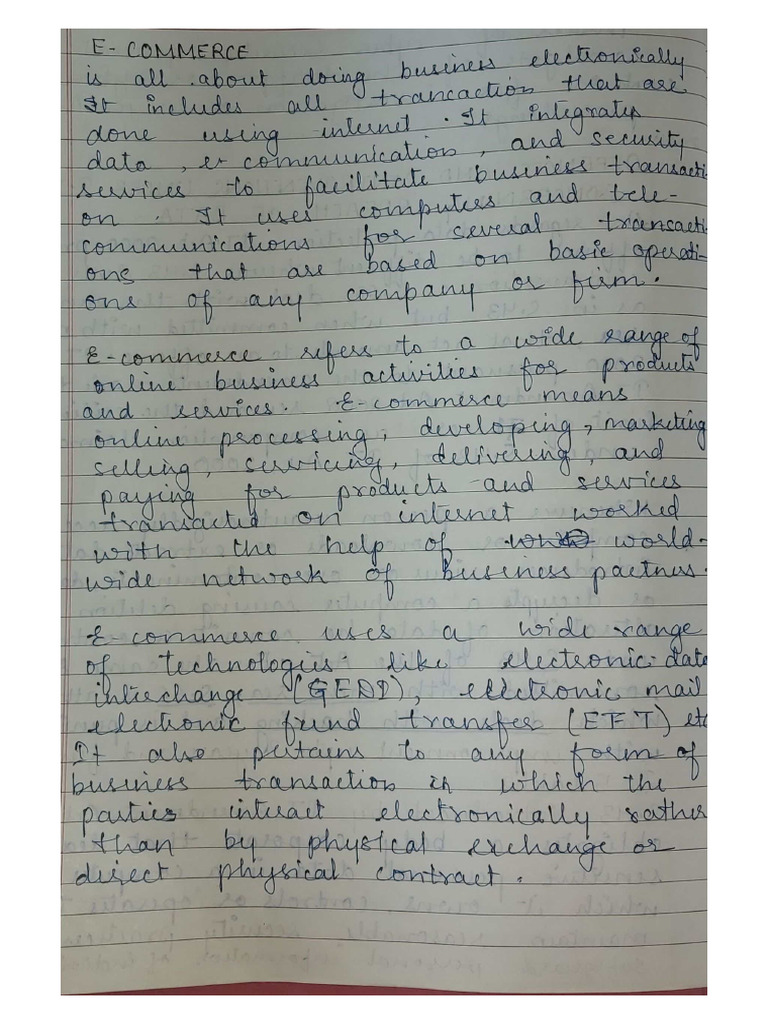 E- COMMERCE
is all about doing business electronically
It includes all trancaction that are
done using internet. It integrates
data, & communication, and security
services to facilitate business transacti-
on. It uses computers and tele-
communications for several transacti-
ons that are based on basic operati-
ons of any company or firm.
E-commerce refers to a wide range of
online business activities for products
and services. E-commerce means
online processing, developing, marketing
selling, servicing, delivering, and
paying for products and services
transacted on internet worked
with the help of world-
wide network of business partners.
E-commerce uses a wide range
of technologies like electronic data
interchange (GEDI), electronic mail
electronic fund transfer (EFT) etc
It also pertains to any form of
business transaction in which the
parties interact electronically rather
than by physical exchange or
direct physical contract.